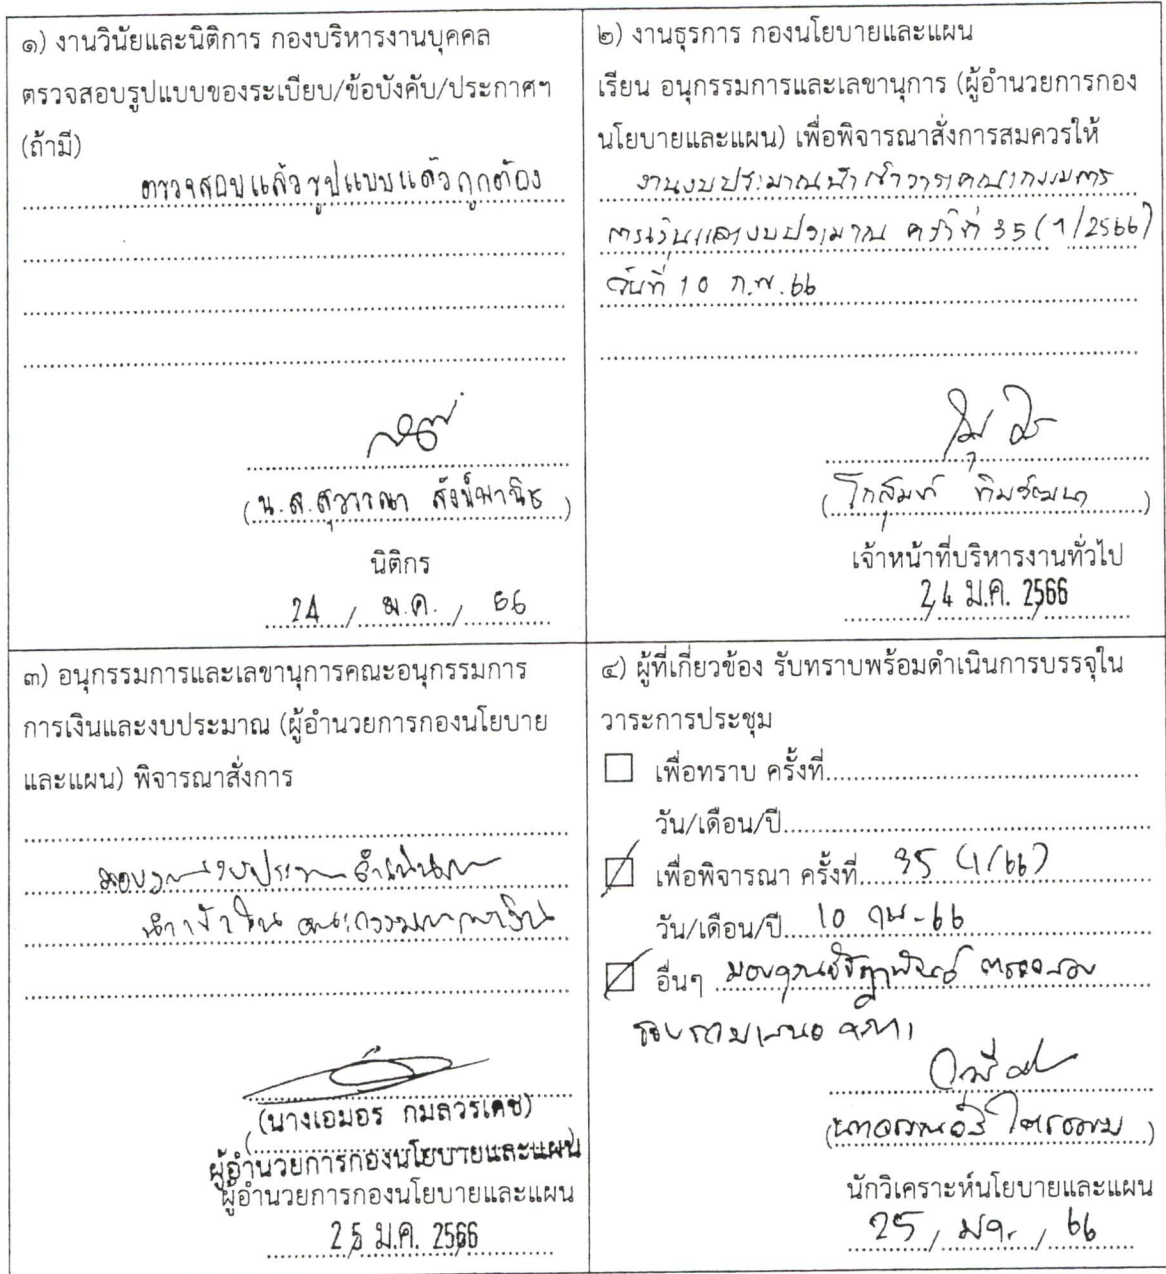 ๑) งานวินัยและนิติการ กองบริหารงานบุคคล
ตรวจสอบรูปแบบของระเบียบ/ข้อบังคับ/ประกาศฯ
(ถ้ามี)
ตรวจสอบแล้วรูปแบบแล้วถูกต้อง
(น.ส.สุวรรณา
นิติกร
24 / ม.ค. / 66
๒) งานธุรการ กองนโยบายและแผน
เรียน อนุกรรมการและเลขานุการ (ผู้อำนวยการกอง
นโยบายและแผน) เพื่อพิจารณาสั่งการสมควรให้
งานงบประมาณนำเข้าวาระคณะกรรมการ
การเงินและงบประมาณ ครั้งที่ 35 (1/2566)
วันที่ 10 ก.พ. 66
(โกสุมภ์ ทิมวัฒนา)
เจ้าหน้าที่บริหารงานทั่วไป
24 ม.ค. 2566
๓) อนุกรรมการและเลขานุการคณะอนุกรรมการ
การเงินและงบประมาณ (ผู้อำนวยการกองนโยบาย
และแผน) พิจารณาสั่งการ
มอบงานงบประมาณดำเนินการ
นำเข้าในคณะกรรมการการเงิน
(นางเอมอร กมลวรเดช)
ผู้อำนวยการกองนโยบายและแผน
ผู้อำนวยการกองนโยบายและแผน
25 ม.ค. 2566
๔) ผู้ที่เกี่ยวข้อง รับทราบพร้อมดำเนินการบรรจุใน
วาระการประชุม
เพื่อทราบ ครั้งที่
วัน/เดือน/ปี
เพื่อพิจารณา ครั้งที่ 35 (1/66)
วัน/เดือน/ปี 10 กพ-66
อื่นๆ มอบคุณ ตรวจสอบ
นักวิเคราะห์นโยบายและแผน
25 / มค. / 66